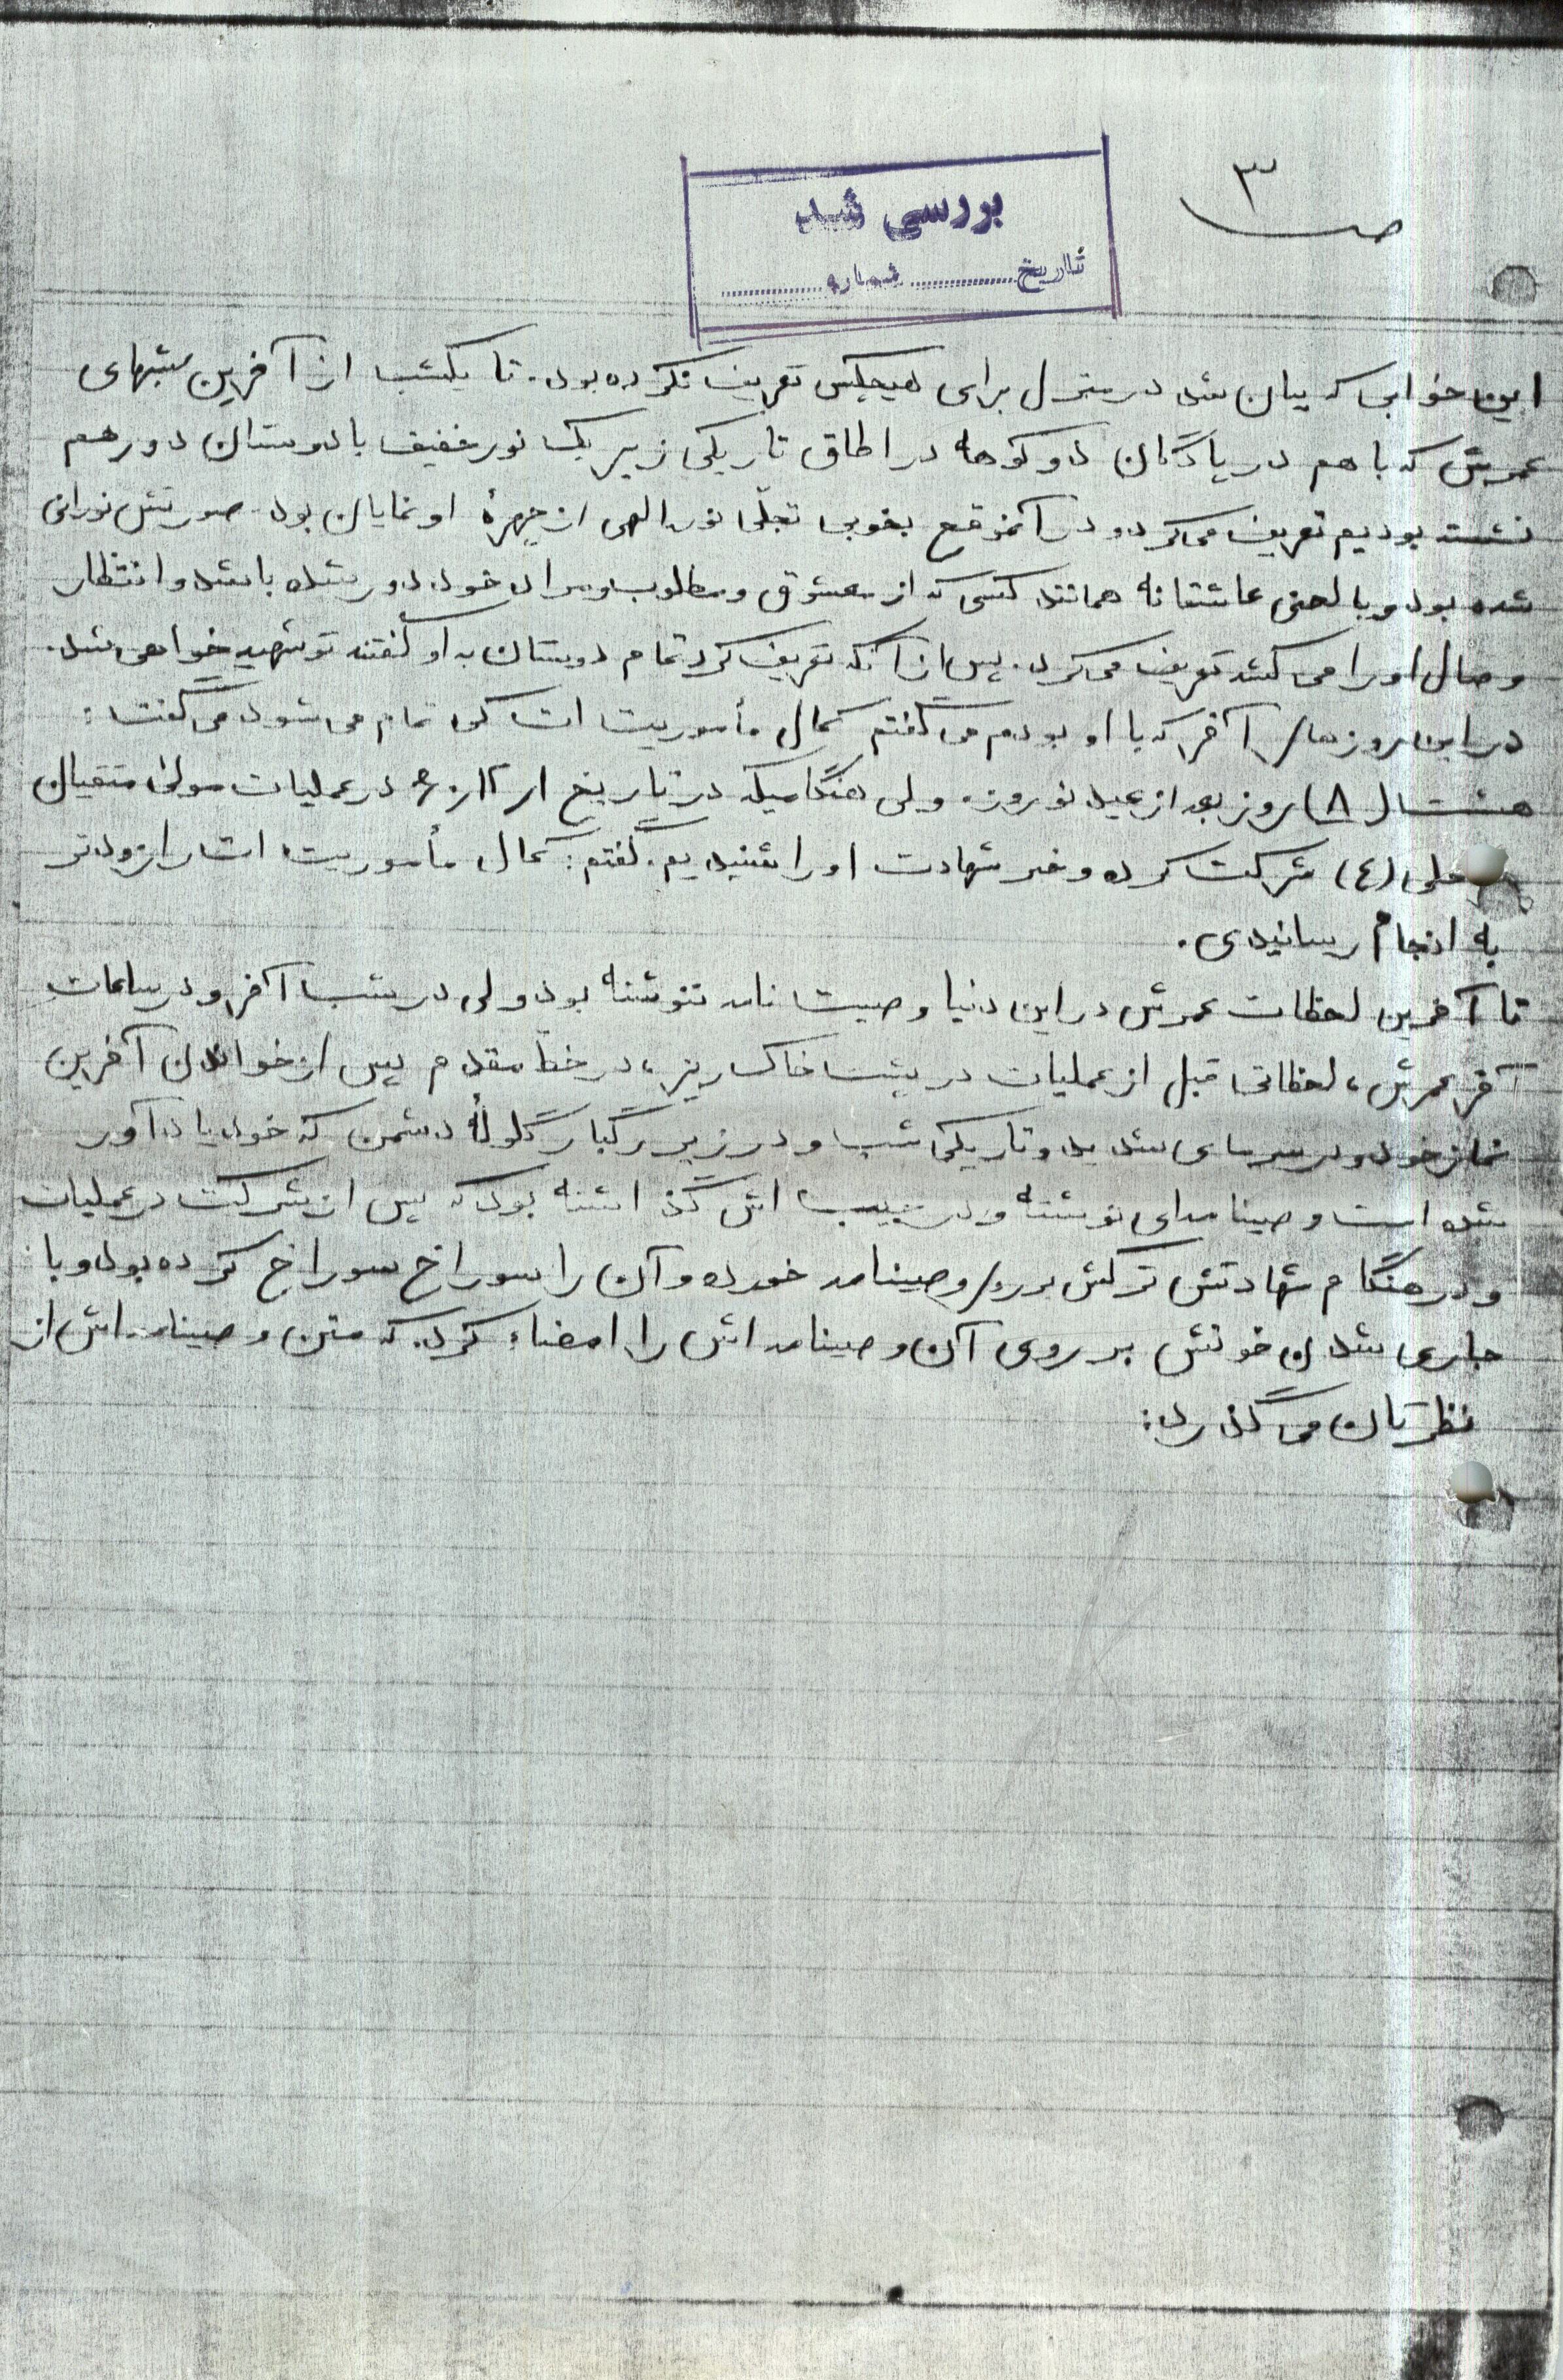 ص ۳
بررسی شد
تاریخ ............ شماره ............
این خوابی که بیان شد در منزل برای هیچکس تعریف نکرده بود. تا یکشب از آخرین شبهای
عمرش که با هم در پادگان دوکوهه در اطاق تاریکی زیر یک نور خفیف با دوستان دور هم
نشسته بودیم تعریف می کرد و در آنموقع بخوبی تجلّی نور الهی از چهرهٔ او نمایان بود. صورتش نورانی
شده بود و با لحنی عاشقانه همانند کسی که از معشوق و مطلوب و مراد خود دور شده باشد و انتظار
وصال او را می کشد تعریف می کرد. پس از آنکه تعریف کرد تمام دوستان به او گفتند تو شهید خواهی شد.
در این روزهای آخر که با او بودم می گفتم کمال مأموریت ات کی تمام می شود می گفت:
هشت (۸) روز بعد از عید نوروز. ولی هنگامیکه در تاریخ در عملیات مولی متقیان
علی (ع) شرکت کرده و خبر شهادت او را شنیدیم. گفتم: کمال مأموریت ات را زودتر
به انجام رسانیدی.
تا آخرین لحظات عمرش در این دنیا وصیت نامه ننوشته بود ولی در شب آخر و در ساعات
آخر عمرش، لحظاتی قبل از عملیات در پشت خاک ریز، در خط مقدم پس از خواندن آخرین
نماز خود و در سرمای شدید و تاریکی شب و در زیر رگبار گلولهٔ دشمن که خود یادآور
شده است وصینامه‌ای نوشته و در جیب اش گذاشته بود که پس از شرکت در عملیات
و در هنگام شهادتش ترکش بر روی وصینامه خورده و آن را سوراخ سوراخ کرده بود و با
جاری شدن خونش بر روی آن وصینامه اش را امضاء کرد. که متن وصینامه اش از
نظرتان می گذرد: